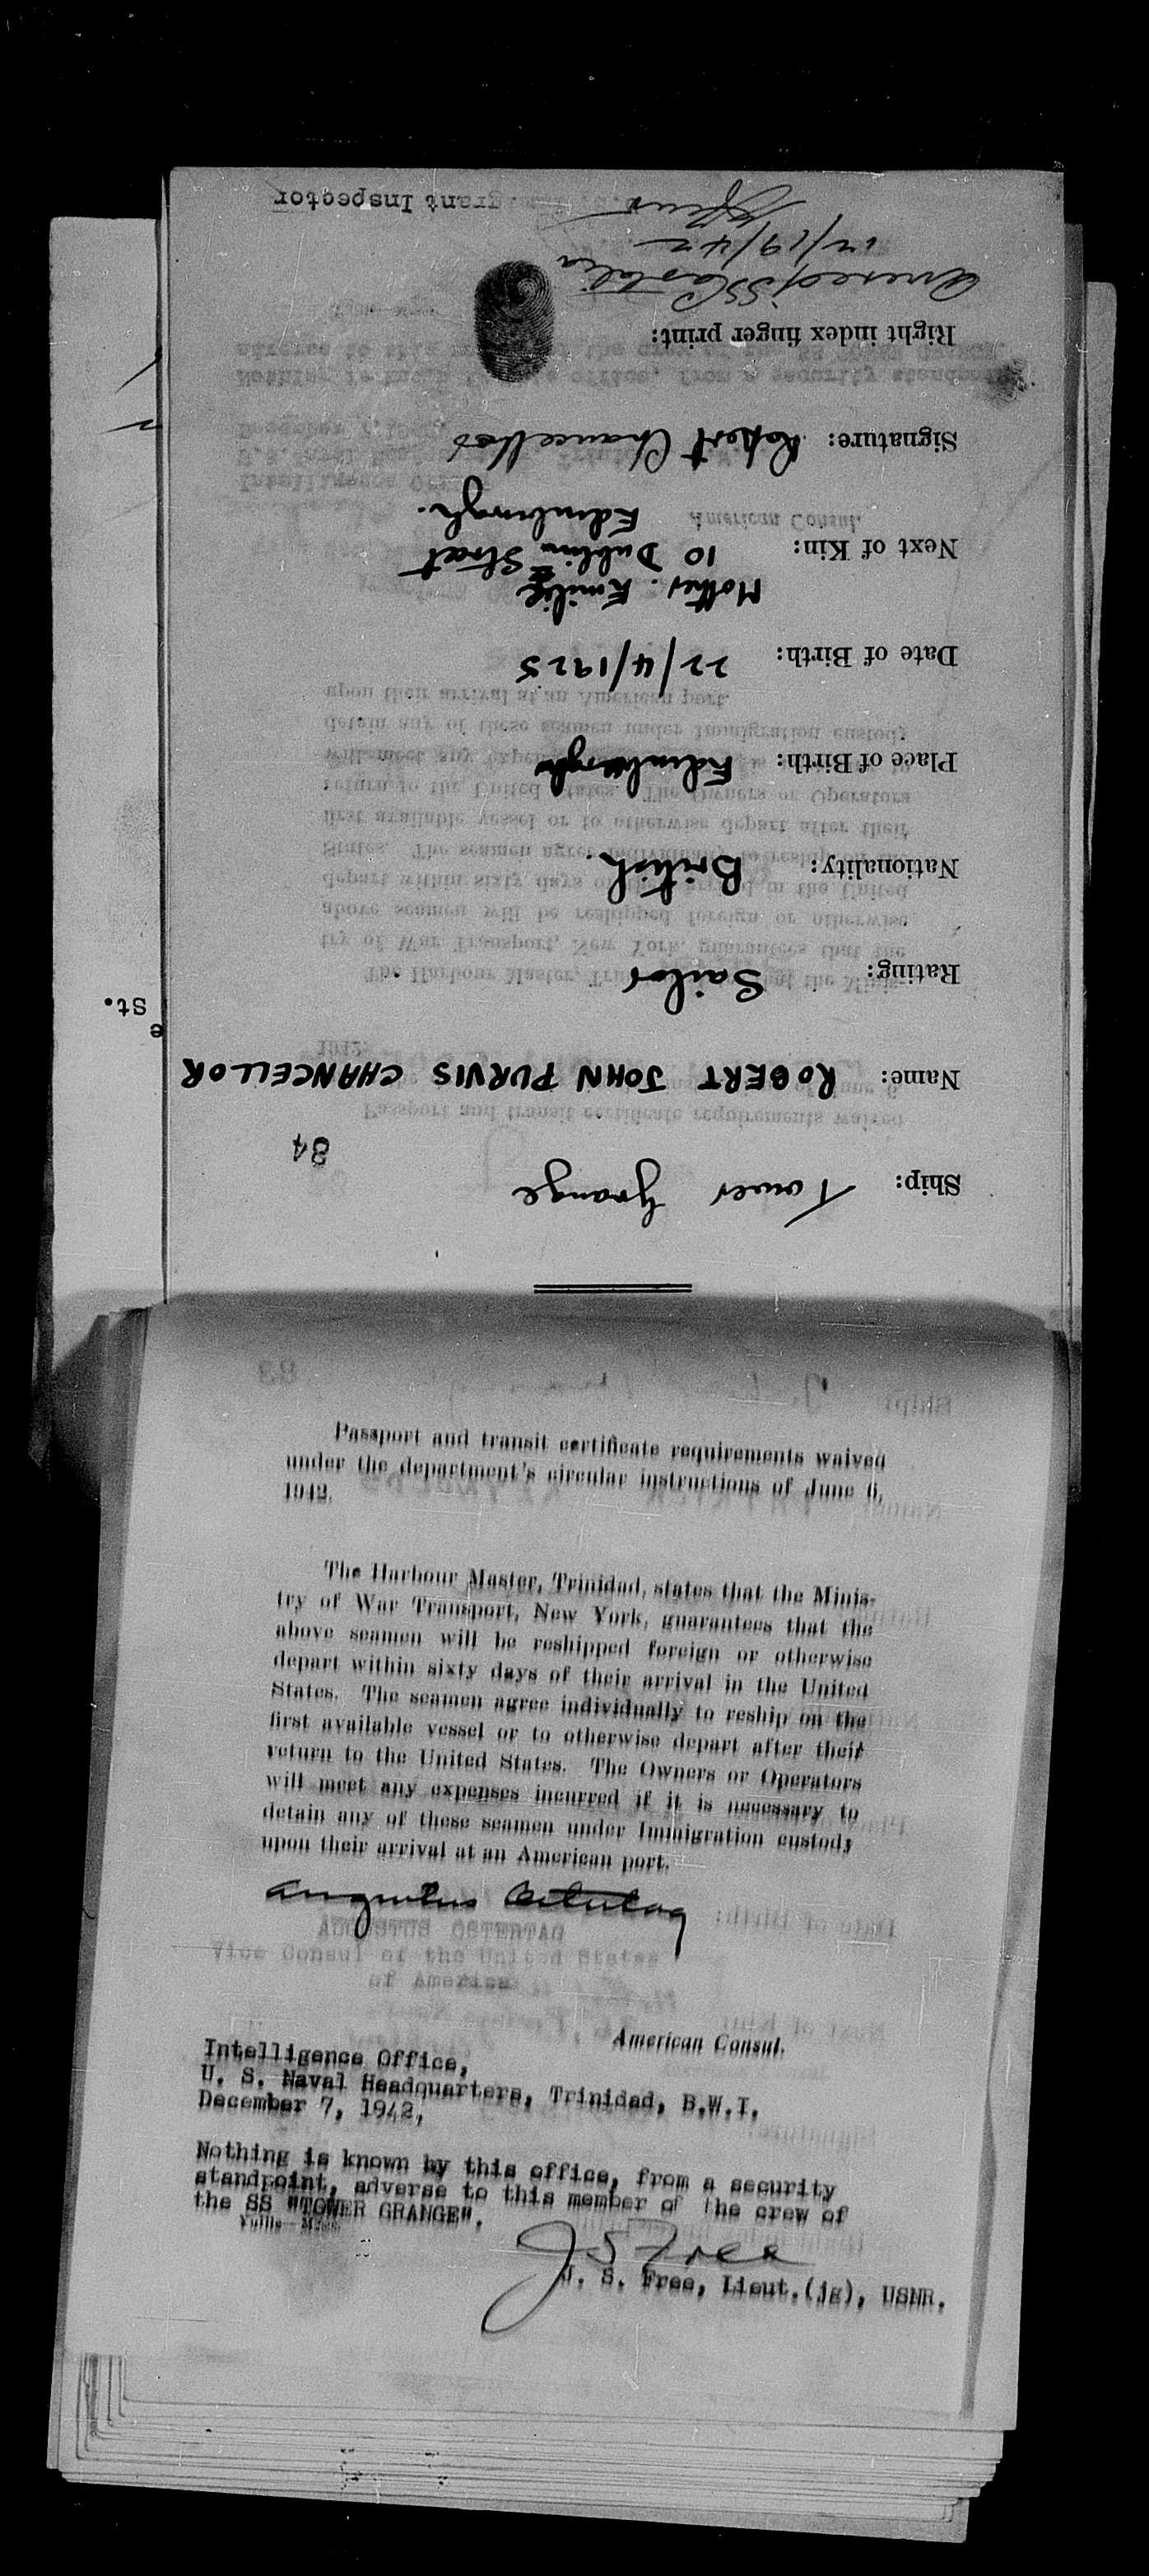 Ship: Tower Grange
84
Name: ROBERT JOHN PURVIS CHANCELLOR
Rating: Sailor
Nationality: British.
Place of Birth: Edinburgh
Date of Birth: 22/4/1925
Mother. Emilie
Next of Kin: 10 Dublin Street
Edinburgh.
American Consul.
Signature: Robert Chancellor
Right index finger print:
12/19/42
grant Inspector
e
St.
Passport and transit certificate requirements waived
under the department's circular instructions of June 6,
1942.
The Harbour Master, Trinidad, states that the Minis-
try of War Transport, New York, guarantees that the
above seamen will be reshipped foreign or otherwise
depart within sixty days of their arrival in the United
States. The seamen agree individually to reship on the
first available vessel or to otherwise depart after their
return to the United States. The Owners or Operators
will meet any expenses incurred if it is necessary to
detain any of these seamen under Immigration custody
upon their arrival at an American port.
Augustus Ostertag
AUGUSTUS OSTERTAG
Vice Consul of the United States
of America
American Consul.
Intelligence Office,
U. S. Naval Headquarters, Trinidad, B.W.I.
December 7, 1942,
Nothing is known by this office, from a security
standpoint, adverse to this member of the crew of
the SS "TOWER GRANGE".
J S Free
J. S. Free, Lieut.(jg), USNR.